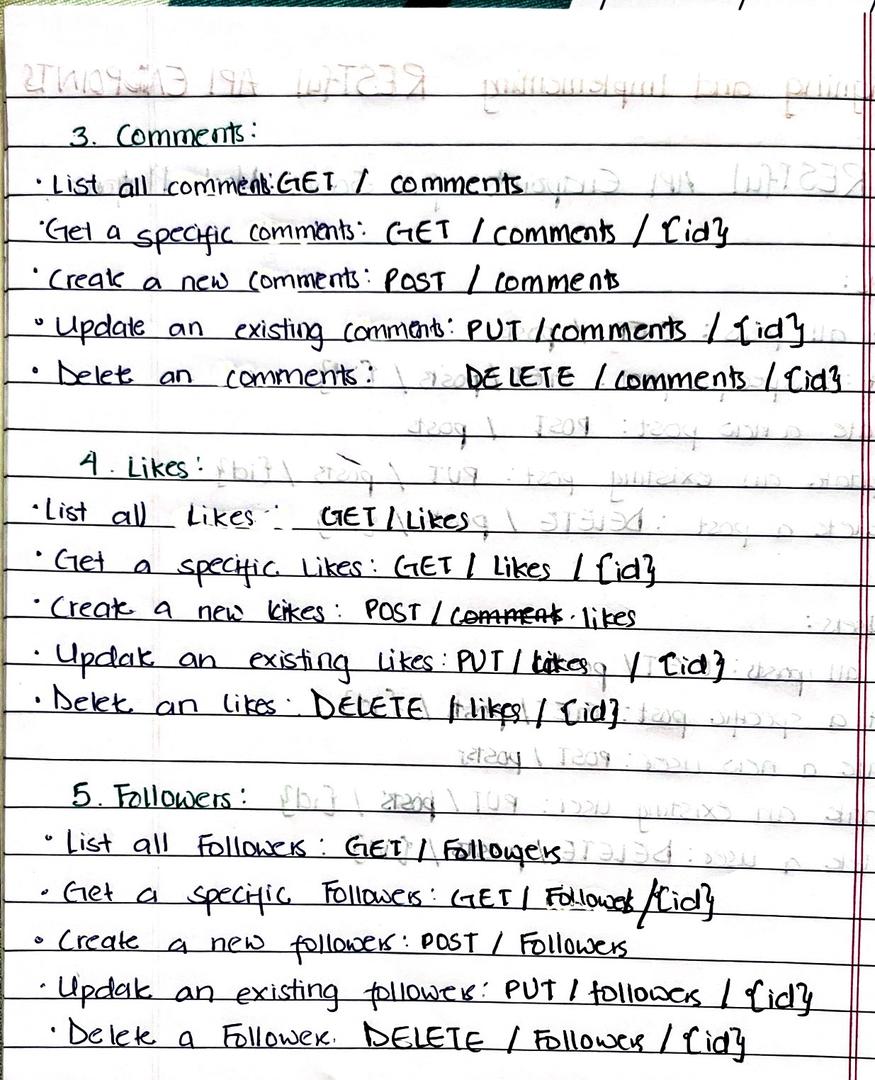 3. Comments:
· List all comment: GET / comments
· Get a specific comments: GET / comments / {id}
· Create a new comments: POST / comments
· Update an existing comments: PUT / comments / {id}
· Delete an comments: DELETE / comments / {id}
4. Likes:
· List all Likes: GET / Likes
· Get a specific Likes: GET / Likes / {id}
· Create a new Likes: POST / comment · likes
· Update an existing likes: PUT / Likes / {id}
· Delete an likes: DELETE / likes / {id}
5. Followers:
· List all Followers: GET / Followers
· Get a specific Followers: GET / Followers / {id}
· Create a new followers: POST / Followers
· Update an existing followers: PUT / followers / {id}
· Delete a Follower. DELETE / Followers / {id}